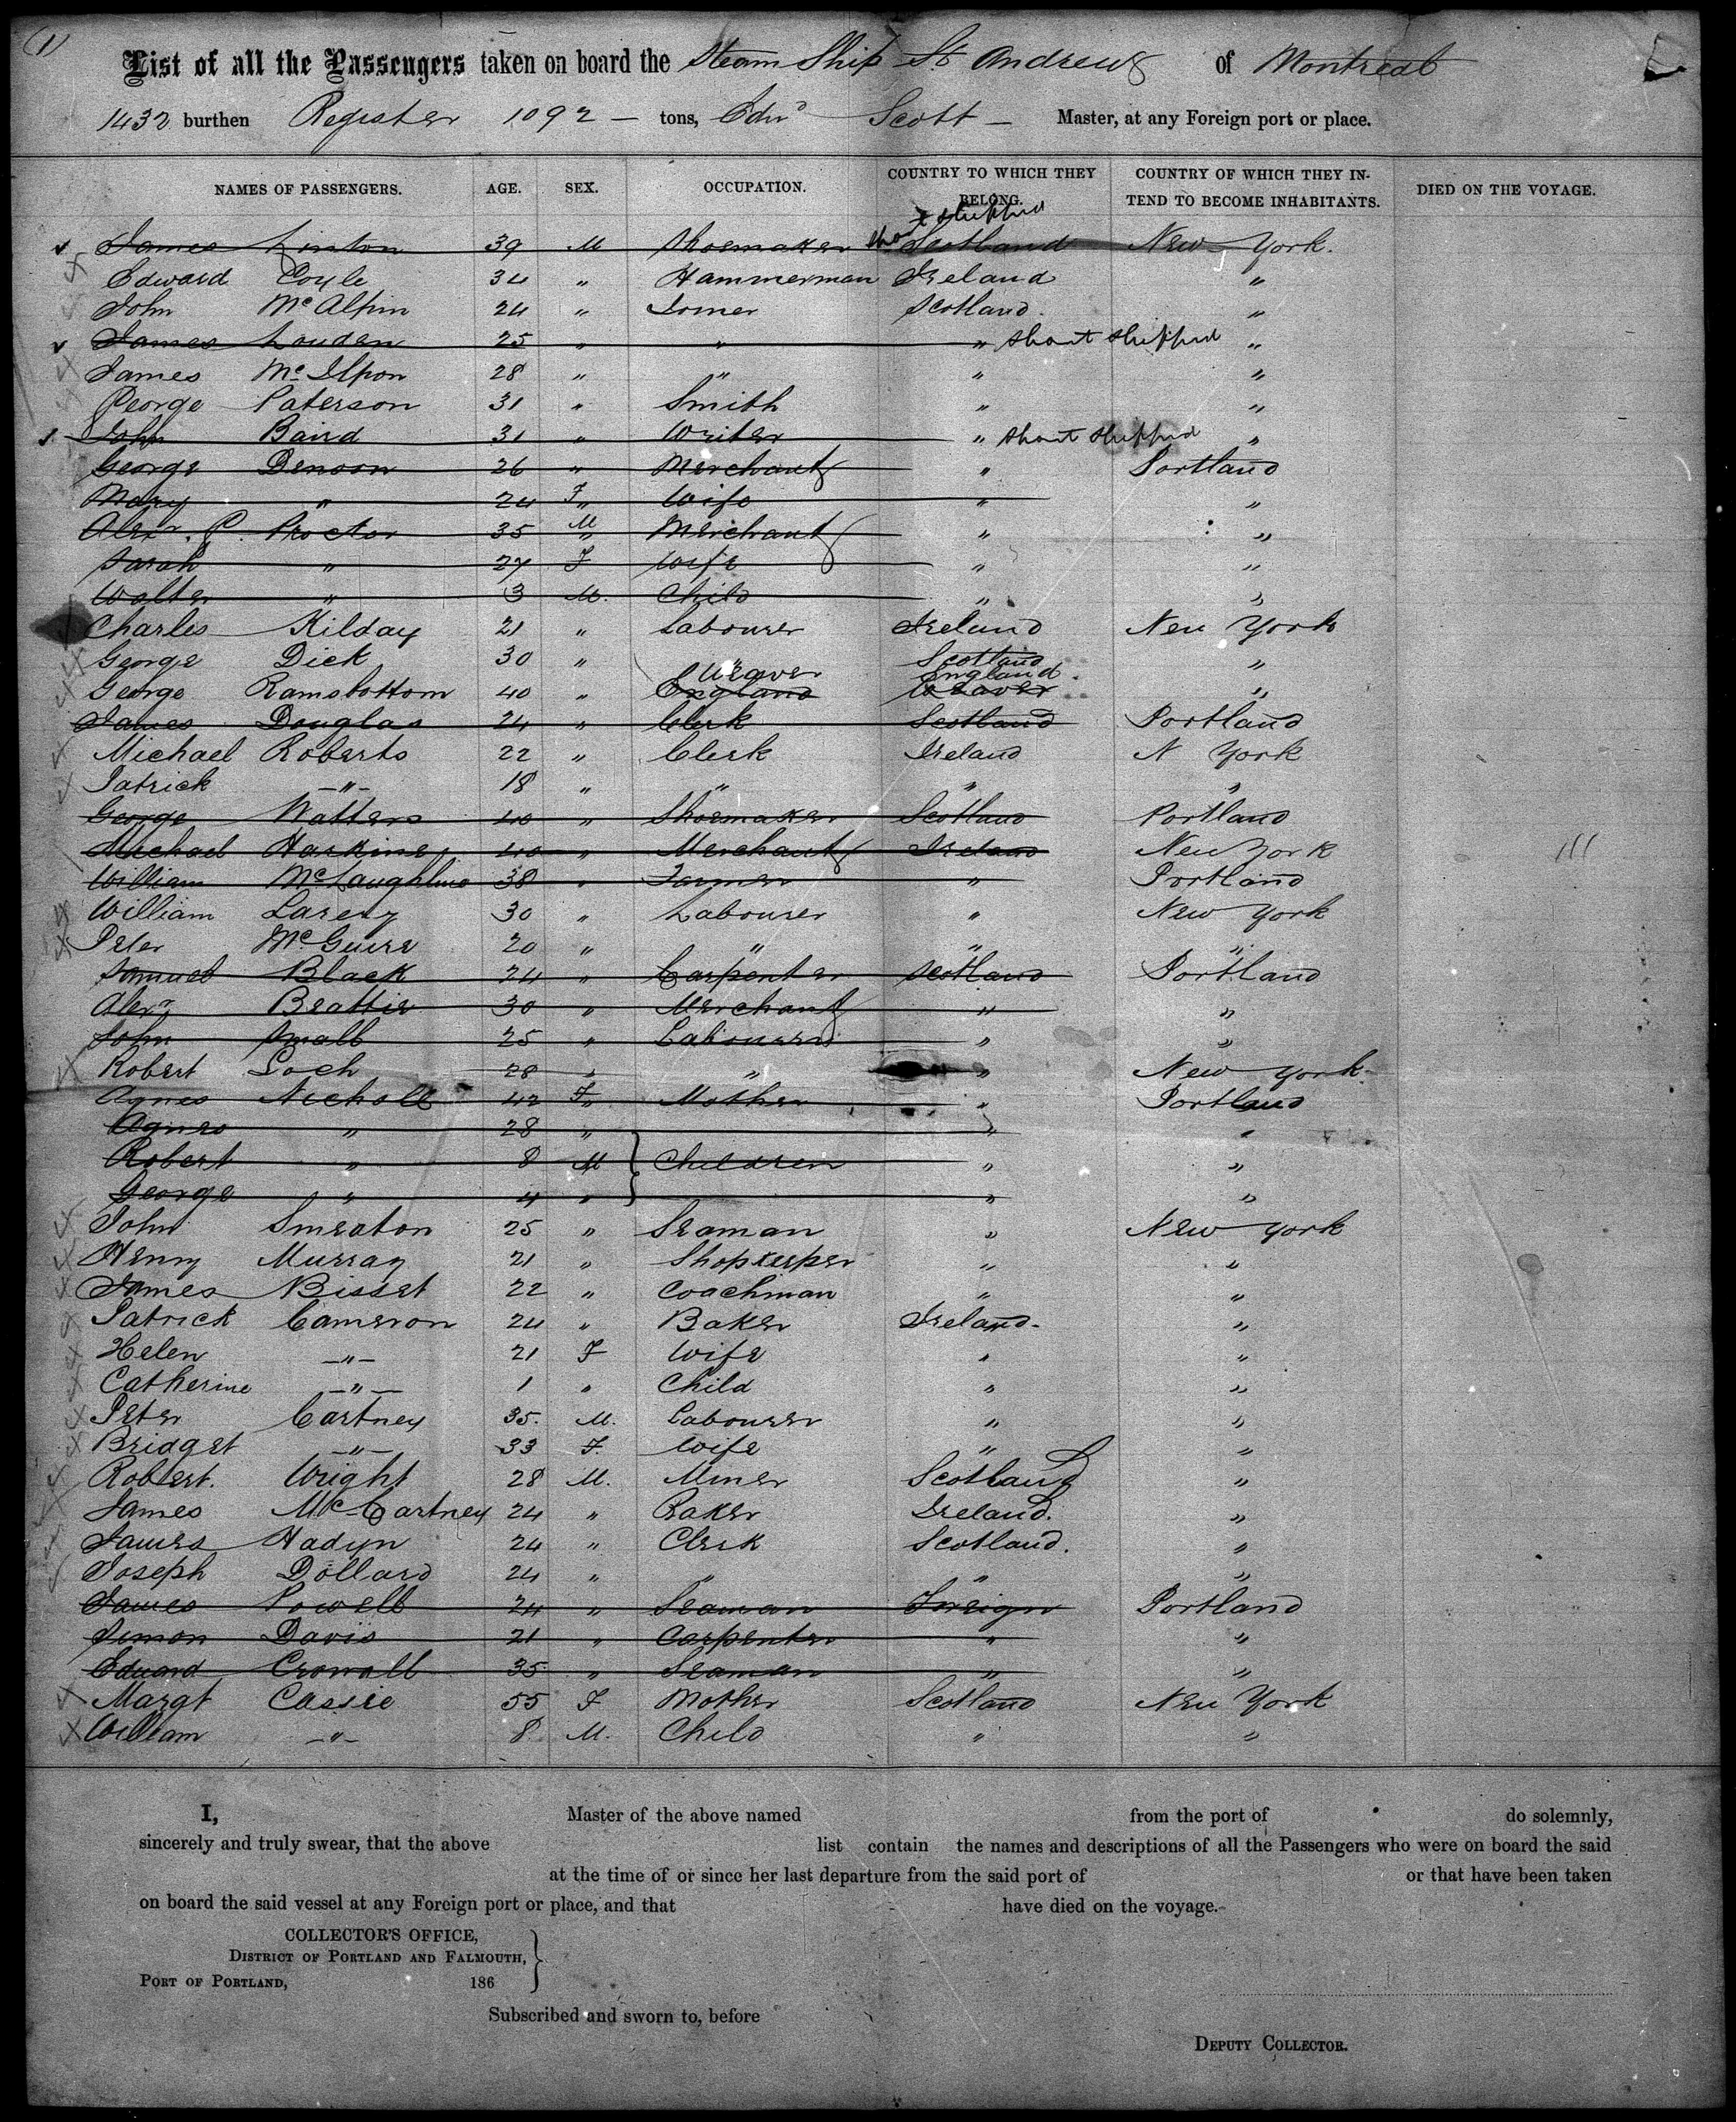 (1)
List of all the Passengers taken on board the Steam Ship St Andrews of Montreal
1432 burthen Register 1092 — tons, Edwd Scott — Master, at any Foreign port or place.
NAMES OF PASSENGERS. AGE. SEX. OCCUPATION. COUNTRY TO WHICH THEY BELONG. COUNTRY OF WHICH THEY INTEND TO BECOME INHABITANTS. DIED ON THE VOYAGE.
James Linton 39 M Shoemaker Short shipped Scotland New York.
Edward Coyle 34 " Hammerman Ireland "
John McAlpin 24 " Joiner Scotland. "
James Louden 25 " " " Short shipped "
James McIlpon 28 " " " "
George Paterson 31 " Smith " "
John Baird 31 " Writer " Short shipped "
George Denoon 26 " Merchant " Portland
Mary " 24 F " Wife " "
Alexr. P. Proctor 35 M " Merchant " "
Sarah " 27 F Wife " "
Walter " 3 M. Child " "
Charles Kilday 21 " Labourer Ireland New York
George Dick 30 " " Scotland "
George Ramsbottom 40 " England Weaver Weaver England. "
James Douglas 24 " Clerk Scotland Portland
Michael Roberts 22 " Clerk Ireland N York
Patrick —"— 18 " " " "
George Watters 40 " Shoemaker Scotland Portland
Michael Harkins 40 " Merchant Ireland New York
William McLaughlin 38 " Farmer " Portland
William 30 " Labourer " New York
Peter McGuire 20 " " " "
Samuel Black 24 " Carpenter Scotland Portland
Alexr Beattie 30 " Merchant " "
John Small 25 " Labourer " "
Robert Loch 28 " " " New York
Agnes Nicholl 42 F " Mother " Portland
Agnes " 28 " " "
Robert " 8 M } Children " "
George " 4 " " "
John Smeaton 25 " Seaman " New York
Henry Murray 21 " Shopkeeper " "
James Bisset 22 " Coachman " "
Patrick Cameron 24 " Baker Ireland. "
Helen —"— 21 F Wife " "
Catherine —"— 1 " Child " "
Peter Cartney 35. M. Labourer " "
Bridget —"— 33 F. Wife " "
Robert. Wright 28 M. Miner Scotland "
James McCartney 24 " Baker Ireland. "
James Hadyn 24 " Clerk Scotland. "
Joseph Dollard 24 " " " "
James Powell 24 " Seaman Foreign Portland
Simon Davis 21 " Carpenter " "
Edward Crowall 35 " Seaman " "
Margt Cassie 55 F Mother Scotland New York
William —"— 8 M. Child " "
I, Master of the above named from the port of do solemnly,
sincerely and truly swear, that the above list contain the names and descriptions of all the Passengers who were on board the said
at the time of or since her last departure from the said port of or that have been taken
on board the said vessel at any Foreign port or place, and that have died on the voyage.
COLLECTOR'S OFFICE,
DISTRICT OF PORTLAND AND FALMOUTH, }
PORT OF PORTLAND, 186
Subscribed and sworn to, before
DEPUTY COLLECTOR.